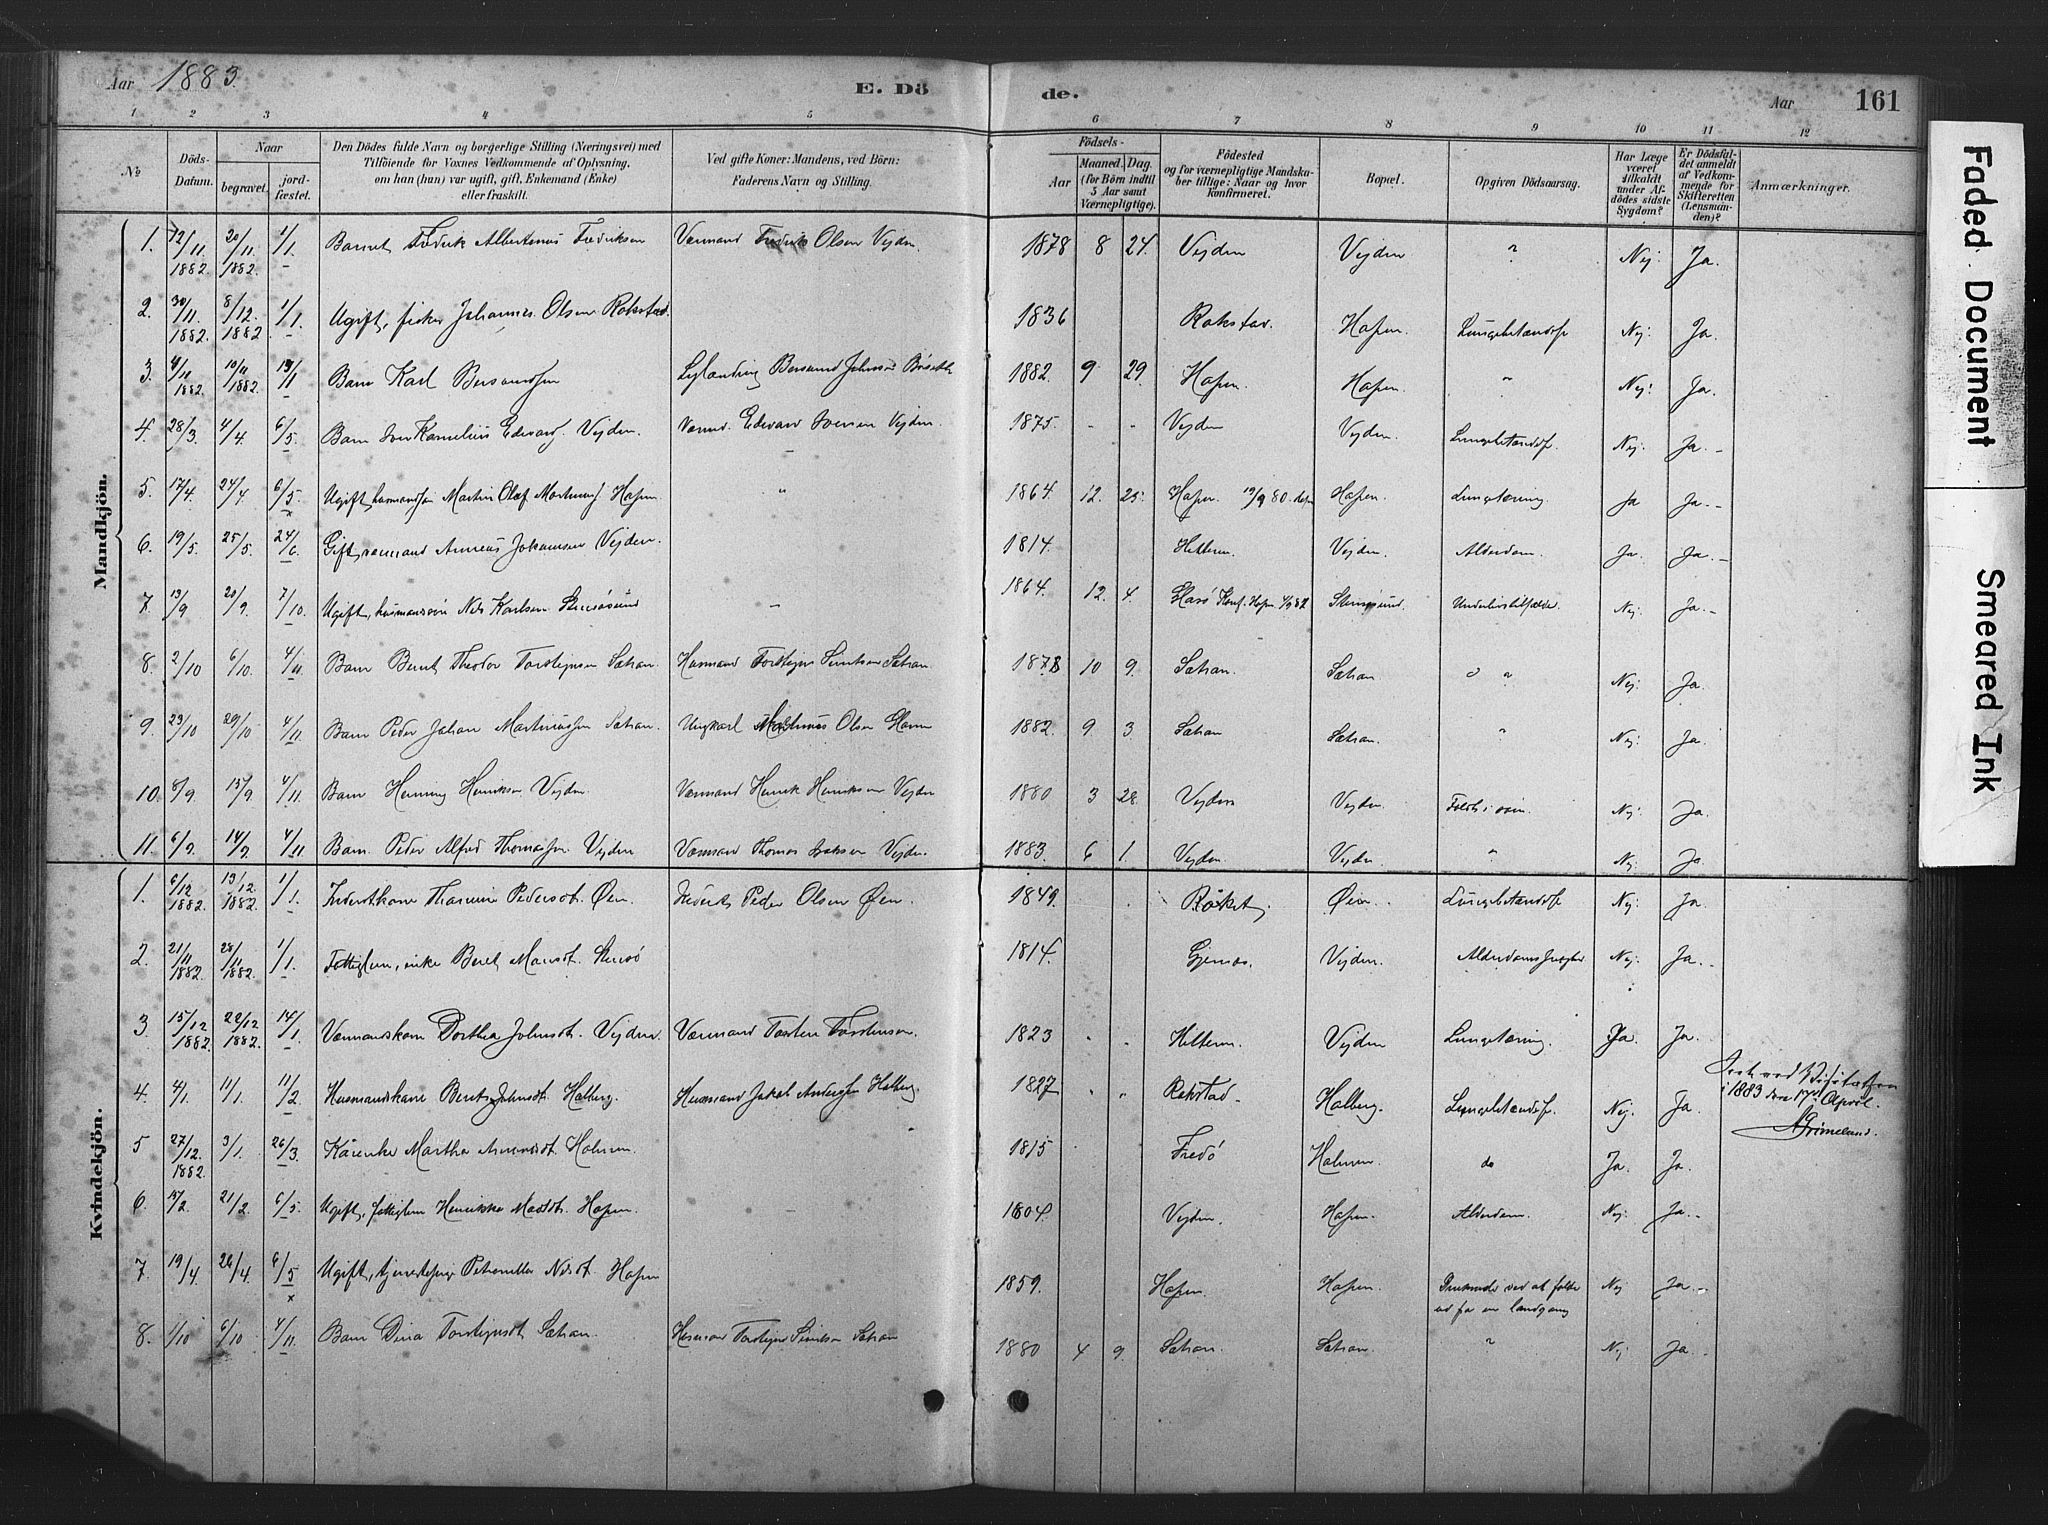 Aar 1883.
E. Döde.
Aar
161
1 2 3 4 5 6 7 8 9 10 11 12
№
Döds-Datum.
Naar
begravet.
jordfæstet.
Den Dödes fulde Navn og borgerlige Stilling (Næringsvei) med
Tilföiende for Voxnes Vedkommende af Oplysning,
om han (hun) var ugift, gift, Enkemand (Enke)
eller fraskilt.
Ved gifte Koner: Mandens, ved Börn:
Faderens Navn og Stilling.
Födsels-
Aar
Maaned. Dag.
(for Börn indtil
5 Aar samt
Værnepligtige).
Födested
og for værnepligtige Mandskaber tillige: Naar og hvor
konfirmeret.
Bopæl.
Opgiven Dödsaarsag.
Har Læge
været
tilkaldt
under Afdödes sidste
Sygdom?
Er Dödsfaldet anmeldt
af Vedkommende for
Skifteretten
(Lensmanden)?
Anmærkninger.
Mandkjön.
1. 12/11 1882. 20/11 1882. 1/1 Barnet Fredrik Albertinus Fredriksen Værmand Fredrik Olsen Vejden. 1878 8 24. Vejden Vejden " Nej. Ja.
2. 30/11 1882. 8/12 1882 1/1. Ugift, fisker Johannes Olsen Rokstad. 1836 Rokstad. Hopen. Lungebetændelse Nej. Ja.
3. 10/11 1882. Barn Karl Berntsen 1882. 9 29. Hopen. Hopen. " Nej. Ja.
4. 28/3. 4/4. 6/5. Barn Iver Kornelius Edvard. Vejden. Værmd. Edvard Iversen Vejden. 1875. - - Vejden Vejden. Lungebetændelse. Nej. Ja.
5. 17/4. 24/4. 6/5. Ugift, husmandssøn Martin Olaf Hopen. " 1864. 12. 25. Hopen. Hopen. Lungetæring. Ja Ja.
6. 19/5. 25/5. 24/6. Gift, værmand Johansen Vejden. 1814. Hitteren. Vejden. Alderdom. Ja. Ja.
7. 13/9 20/9. 7/10. Ugift, husmandssøn Nils Karlsen Stensøsund " 1864. 12. 4. Konf. Hopen Stensøsund. Nej. Ja.
8. 2/10 6/10. 4/11. Barn Bernt Theodor Torstejnsen Sætran. Husmand Torstejn Simensen Sætran 1878 10 9. Sætran. Sætran " Nej. Ja.
9. 23/10 29/10 4/11. Barn Peder Johan Martinussen Sætran. Ungkarl Martinus Olsen 1882. 9 3. Sætran Sætran. " Nej. Ja.
10. 8/9. 15/9. 4/11. Barn Henning Henriksen Vejden. Værmand Henrik Henriksen Vejden 1880 3 28. Vejden Vejden. Nej. Ja
11. 6/9. 14/9. 4/11. Barn Peder Alfred Thomassen Vejden Værmand Thomas Vejden. 1883. 6 1. Vejden. Vejden. " Nej. Ja.
Kvindekjön.
1. 6/12 1882. 13/12 1882. 1/1. Inderstkone Pedersdt. Øien. Inderst Peder Olsen Øien. 1849. Øien. Lungebetændelse Nej. Ja.
2. 21/11 1882. 28/11 1882. 1/1. Fattiglem, enke Beret Stensø 1814. Vejden. Nej. Ja.
3 15/12 1882. 22/12 1882. 14/1. Værmandskone Dorthea Johnsdt. Vejden. Værmand Torsten Torstensen. 1823 Hitteren. Vejden Lungetæring. Ja. Ja.
4. 4/1. 11/1. 11/2 Husmandskone Johnsdt. Halberg. Husmand Jakob Andersen Halberg. 1827 Rokstad. Halberg. Lungebetændelse. Nej. Ja.
ved Visitatsen
i 1883 den 17de April.
Grimelund.
5 27/12 1882. 3/1. 26/3. Martha Holmen. 1815 Fredø Holmen. do Ja. Ja.
6. 21/2. 6/5. Ugift, fattiglem Henrikke Hopen. 1804. Vejden. Hopen. Alderdom. Nej. Ja.
7. 19/4. 26/4. 6/5 Ugift, tjenestepige Petronelle Nilsdt. Hopen 1859. Hopen. Hopen. Druknede ved at falde
ud fra en landgang Nej Ja.
8. 1/10 6/10. 4/11. Barn Dina Torstejnsdt. Sætran. Husmand Torstejn Simensen Sætran 1880 4 9. Sætran. Sætran. " Nej Ja.
Faded Document
Smeared Ink